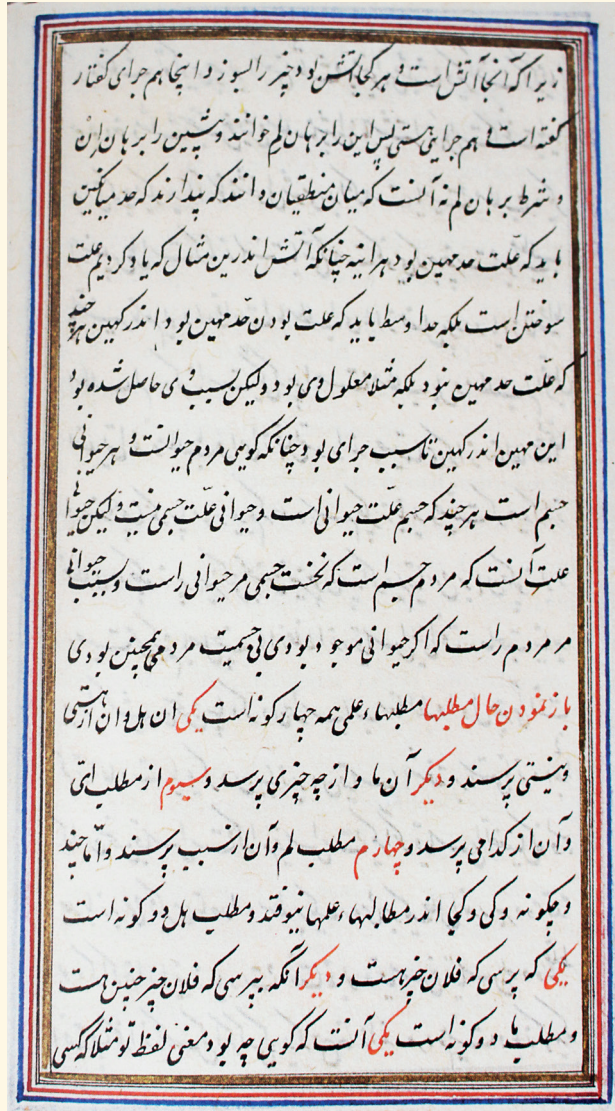 زیرا که آنجا آتش است و هر کجا آتش بود چیز را بسوزد اینجا هم چرای گفتار
گفته است و هم چرایی هستی پس این را برهان لم خوانند و پیشین را برهان ان
و شرط برهان لم نه آنست که میان منطقیان دانند که پندارند که حد میانگین
باید که علّت حد مهین بود هراینه چنانکه آتش اندرین مثال که یاد کردیم علت
سوختن است بلکه حد اوسط باید که علت بودن حّد مهین بود اندر کهین هر چند
که علّت حد مهین نبود بلکه مثلا معلول وی بود ولیکن بسبب وی حاصل شده بود
این مهین اندر کهین تا سبب چرای بود چنانکه گویی مردم حیوانست و هر حیوانی
جسم است هر چند که جسم علّت حیوانی است و حیوانی علّت جسمی نیست ولیکن حیوانی
علت آنست که مردم جسم است که نخست جسمی مر حیوانی راست و بسبب حیوانی
مر مردم راست که اگر حیوانی موجود بودی بی جسمیت مردمی همچنین بودی
باز نمودن حال مطلبها مطلبهاء علمی همه چهار گونه است یکی ان هل و ان از هستی
و نیستی پرسند و دیگر آن ما و از چه چیزی پرسد و سیوم از مطلب ای
و آن از کدامی پرسد و چهارم مطلب لم و آن از سبب پرسند و امّا چند
و چگونه و کی و کجا اندر مطالبهاء علمها نیوفتد و مطلب هل دو گونه است
یکی که پرسی که فلان چیز هست و دیگر آنکه بپرسی که فلان چیز چنین هست
و مطلب ما دو گونه است یکی آنست که گویی چه بود معنی لفظ تو مثلا که کسی